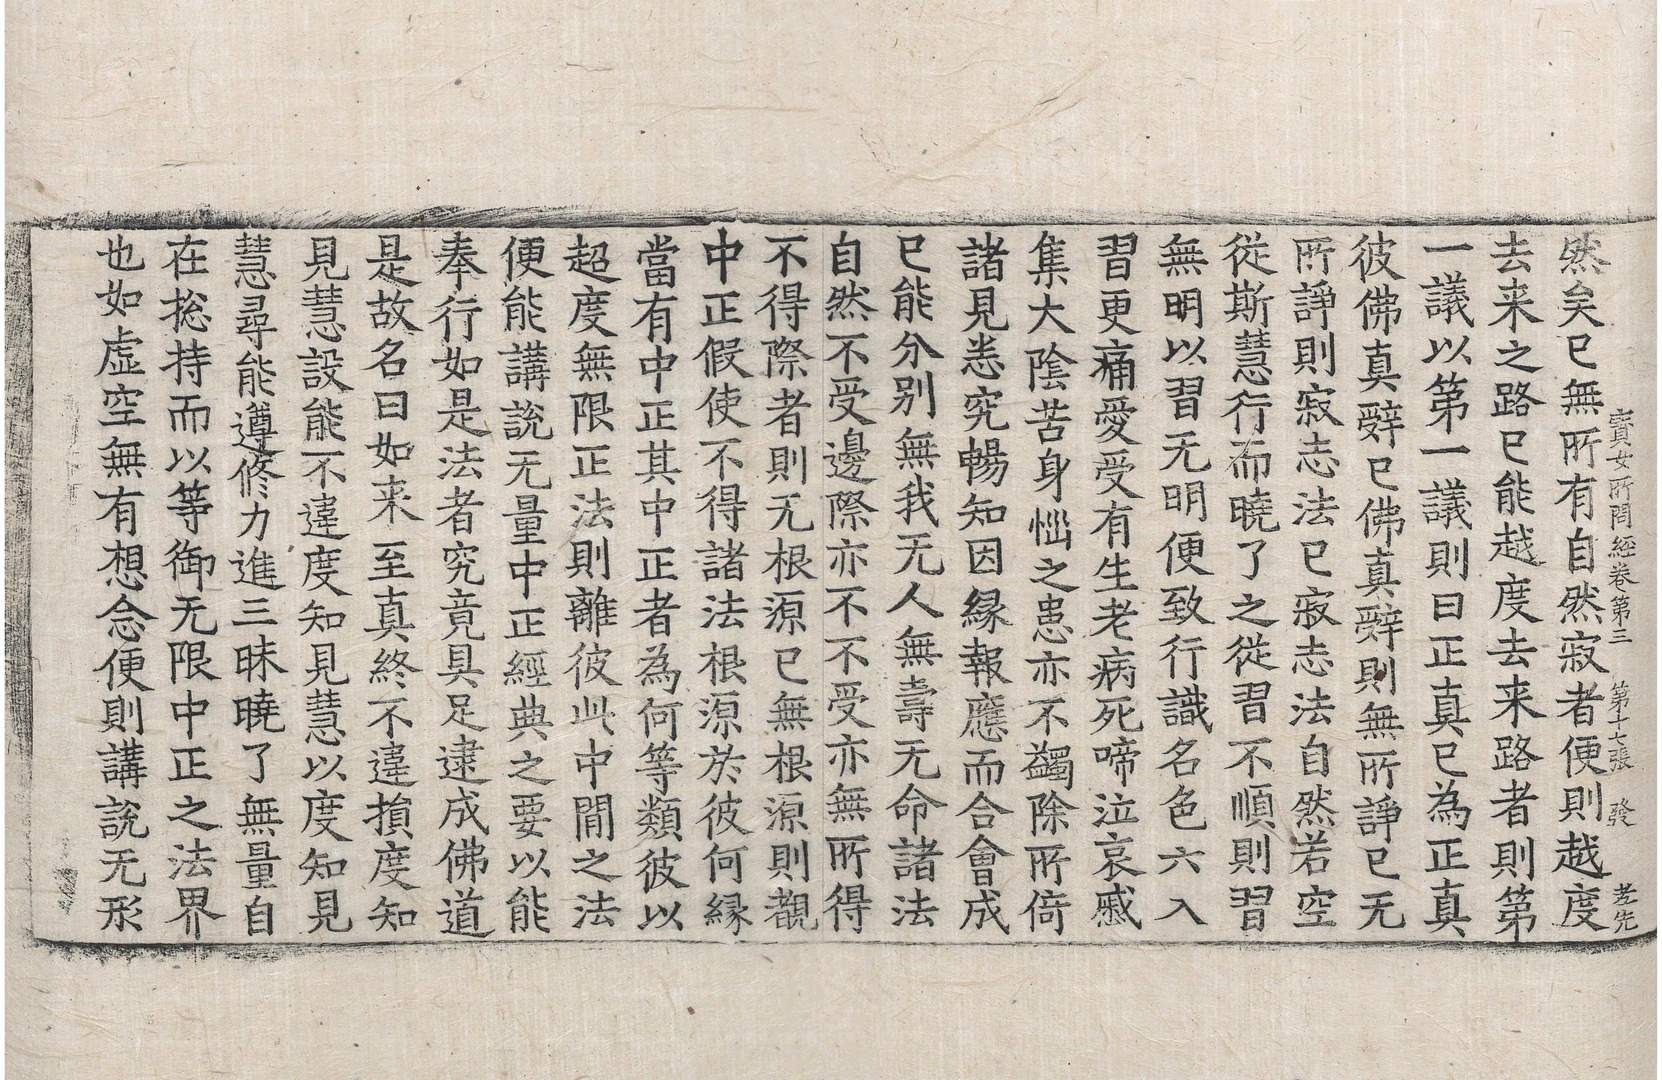 寶女所問經卷第三　第十七張　發　孝先
然矣已無所有自然寂者便則越度
去来之路已能越度去来路者則第
一議以第一議則曰正真已為正真
彼佛真辭已佛真辭則無所諍已无
所諍則寂志法已寂志法自然若空
從斯慧行而曉了之從習不順則習
無明以習无明便致行識名色六入
習更痛愛受有生老病死啼泣哀慼
集大陰苦身惱之患亦不蠲除所倚
諸見悉究暢知因縁報應而合會成
已能分别無我无人無壽无命諸法
自然不受邊際亦不不受亦無所得
不得際者則无根源已無根源則觀
中正假使不得諸法根源於彼何縁
當有中正其中正者為何等類彼以
超度無限正法則離彼此中間之法
便能講說无量中正經典之要以能
奉行如是法者究竟具足逮成佛道
是故名曰如来至真終不違損度知
見慧設能不違度知見慧以度知見
慧尋能遵修力進三昧曉了無量自
在揔持而以等御无限中正之法界
也如虛空無有想念便則講說无形